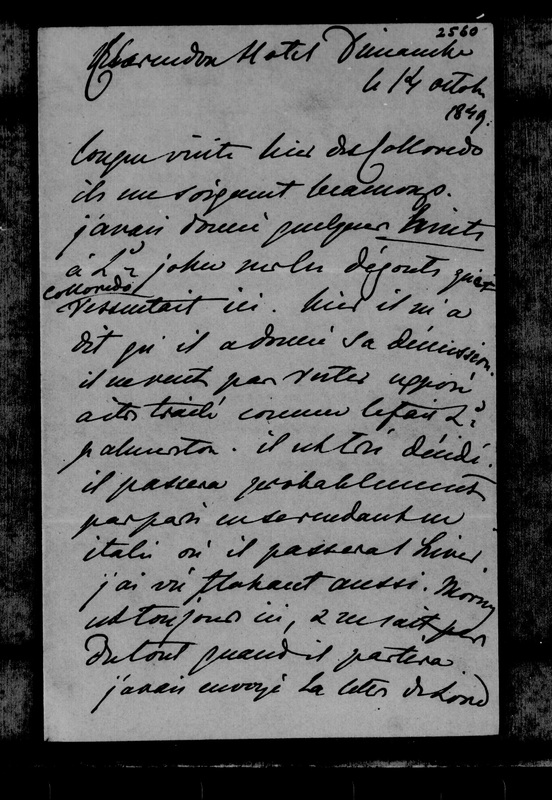 2560
Clarendon Hotel Dimanche
le 14 octob
1849.
longue visite hier des Colloredo
ils me soignent beaucoup.
j'avais donné quelques hints
à Ld John sur les dégouts que
Colloredo
ressentait ici. hier il m'a
dit qu'il a donné sa démission.
il ne veut pas rester exposé
à être traité comme le fait Ld
palmerston. il est très décidé.
il passera probablement
par paris en se rendant en
italie où il passera l'hiver.
j'ai vu flahaut aussi. Morny
est toujours ici, & ne sait pas
du tout quand il partira
j'avais envoyé la lettre de Lord